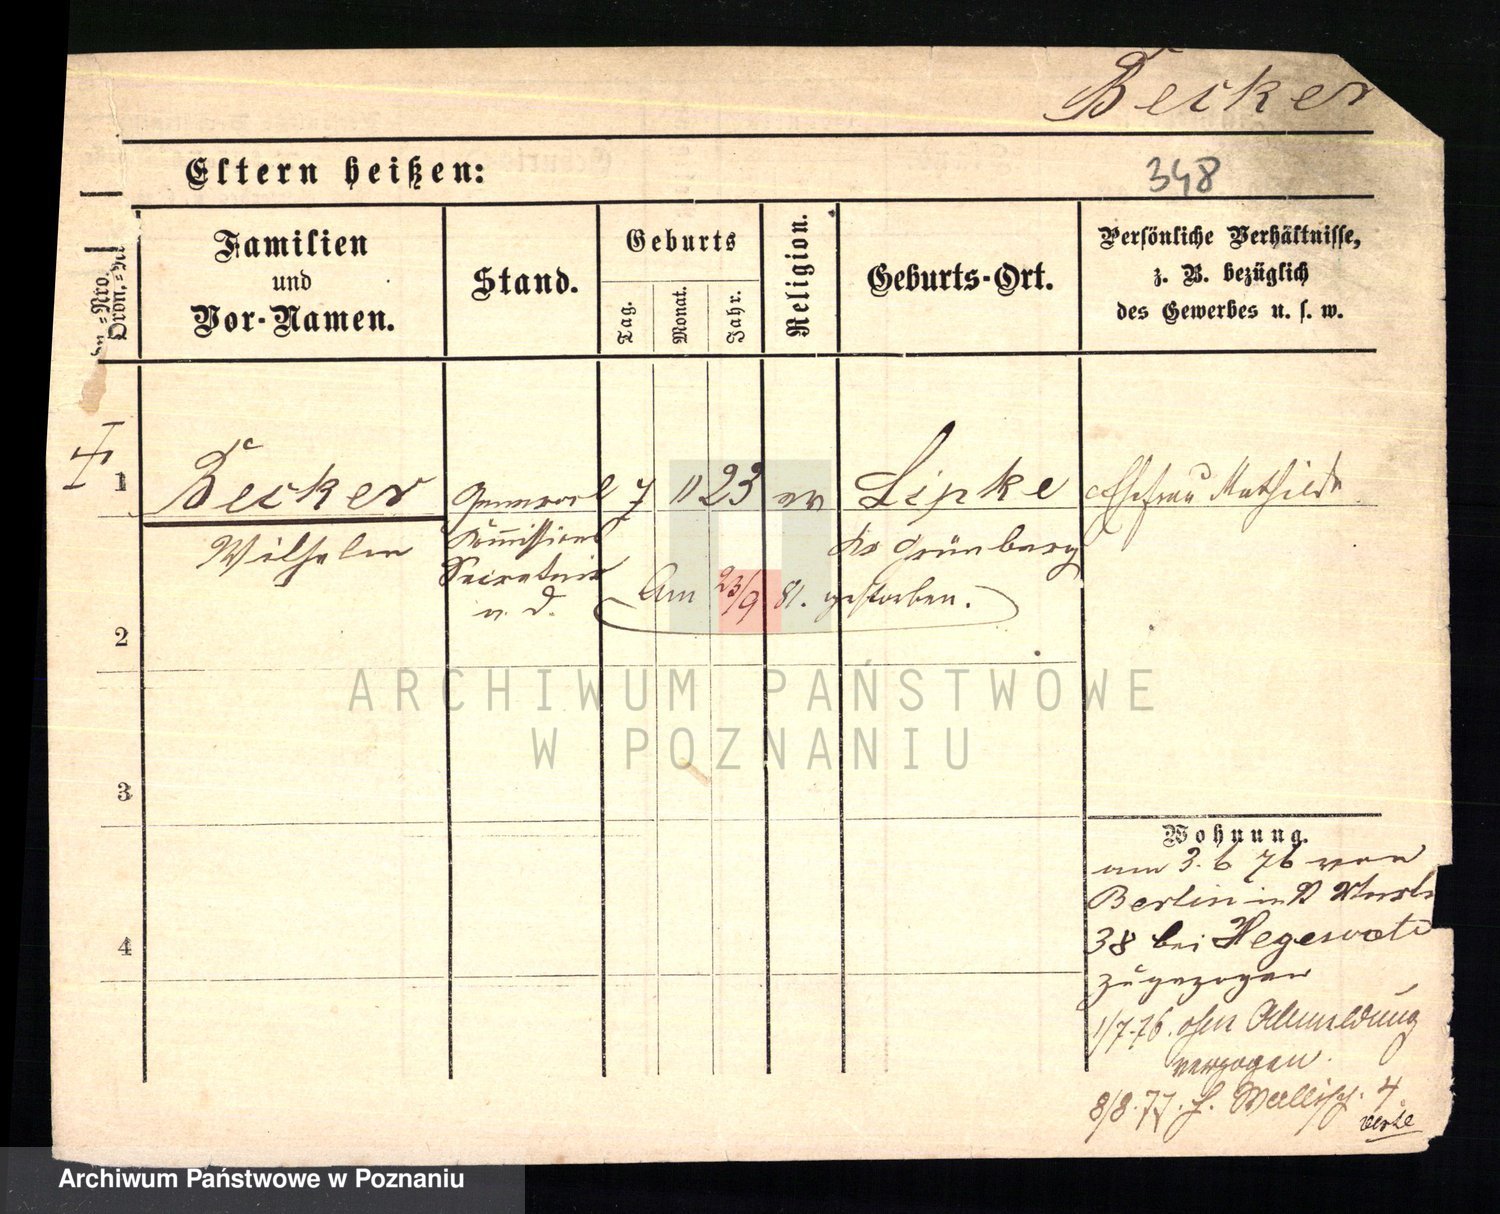 Becker
Eltern heißen:
348
Familien
und
Vor-Namen.
Stand.
Geburts
Tag.
Monat.
Jahr.
Religion.
Geburts-Ort.
Persönliche Verhältnisse,
z. B. bezüglich
des Gewerbes u. s. w.
Nro.
Ordn.
1
Becker
Wilhelm
General
Kommissions
Secretair
a. D.
7 11 23 ev
Lipke
Ks Grünberg
Ehefrau Mathilde
Am 23/9 81. gestorben.
2
3
4
Wohnung.
am 3. 6 76 von
Berlin in
38 bei
zugezogen
1/7.76. ohne Abmeldung
verzogen.
8/8.77. 4.
ARCHIWUM PAŃSTWOWE
W POZNANIU
Archiwum Państwowe w Poznaniu